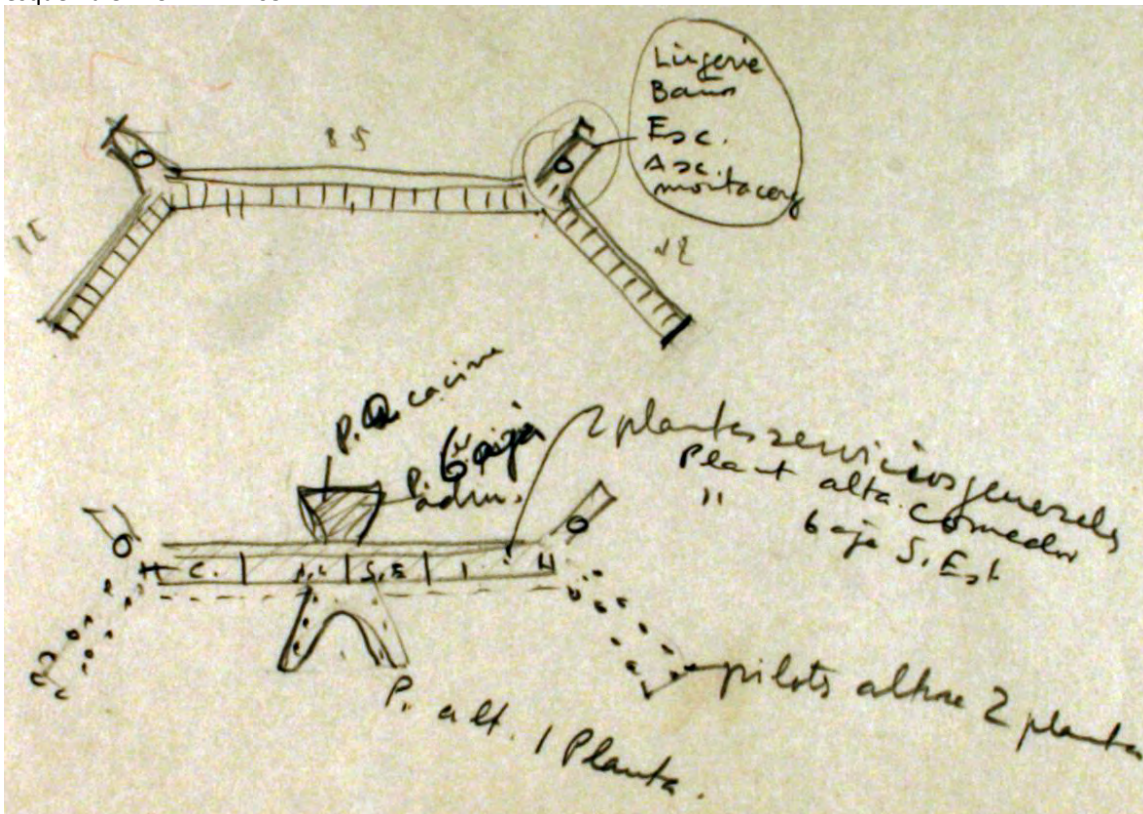 Lingerie
Baños
Esc.
Asc.
montacarg
85
P. cocina
P. baja
adm.
2 plantas servicios generales
Plant alta. Comedor
" baja S. Est
C.
S.E
H
P. alt. 1 Planta.
pilots altura 2 plantas